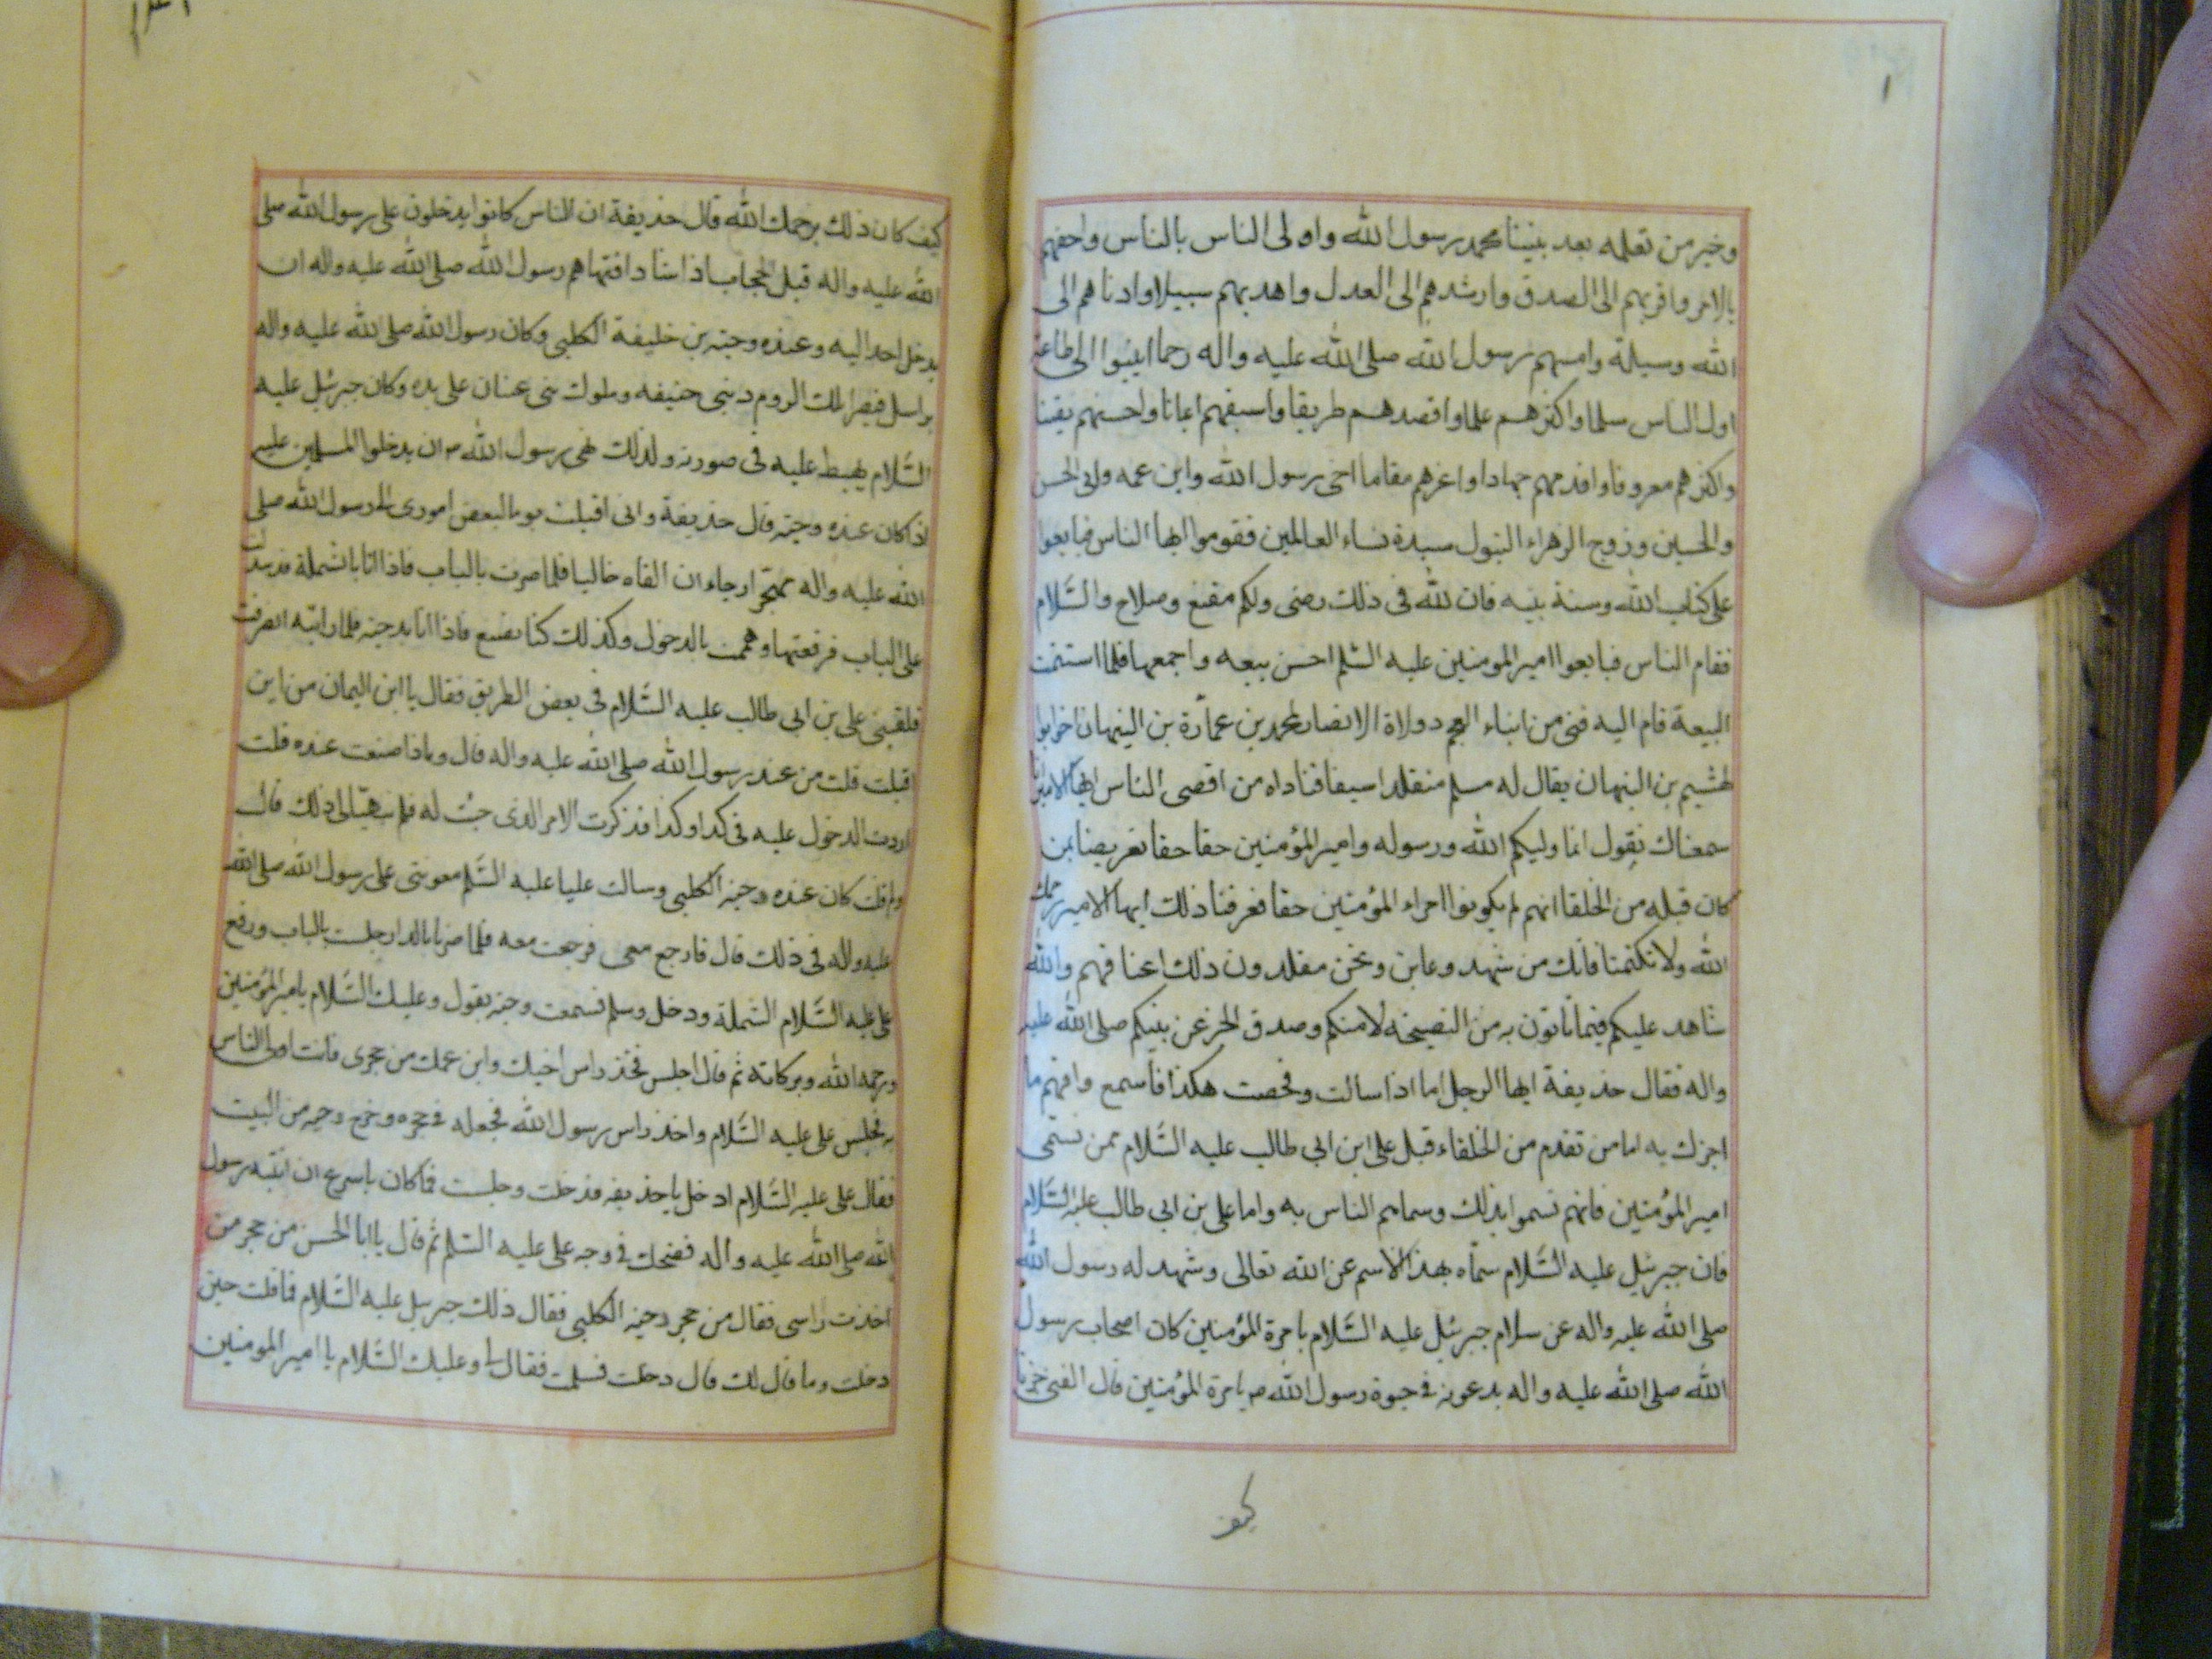 وخير من تعلمه بعد نبينا محمد رسول الله واولى الناس بالناس واحقهم
بالامر واقربهم الى الصدق وارشدهم الى العدل واهديهم سبيلا وادناهم الى
الله وسيلة وامسهم برسول الله صلى الله عليه واله رحما انيبوا الى طاعة
اول الناس سلما واكثرهم علما واقصدهم طريقا واسبقهم ايمانا واحسنهم يقينا
واكثرهم معروفا واقدمهم جهادا واعزهم مقاما اخى رسول الله وابن عمه وابى الحسن
والحسين وزوج الزهراء البتول سيدة نساء العالمين فقوموا ايها الناس فبايعوا
على كتاب الله وسنة نبيه فان لله فى ذلك رضى ولكم مقنع وصلاح والسَّلام
فقام الناس فبايعوا امير المومنين عليه السّلم احسن بيعه واجمعها فلما استتمت
البيعة قام اليه فتى من ابناء العجم وولاة الانصار لمحمد بن عمارة بن التيهان اخو ابو
لهشيم بن التيهان يقال له مسلم متقلدا سيفا فناداه من اقصى الناس ايها الامير انا
سمعناك تقول انما وليكم الله ورسوله وامير المؤمنين حقا حقا تعريضا بمن
كان قبله من الخلفا انهم لم يكونوا امراء المؤمنين حقا فعرفنا ذلك ايها الامير رحمك
الله ولا تكتمنا فانك من شهد وعاين ونحن مقلدون ذلك اعناقهم والله
شاهد عليكم فيما تاتون به من النصيحة لامتكم وصدق الخبر عن نبيكم صلى الله عليه
واله فقال حذيفة ايها الرجل اما اذا سالت وفحصت هكذا فاسمع وافهم ما
اخبرك به اما من تقدم من الخلفاء قبل على ابن ابى طالب عليه السَّلام ممن تسمى
امير المؤمنين فانهم تسموا بذلك وسماهم الناس به واما على بن ابى طالب عليه السَّلام
فان جبرئيل عليه السَّلام سمّاه بهذا الاسم عن الله تعالى وشهد له رسول الله
صلى الله عليه واله عن سلام جبرئيل عليه السَّلام بامرة المؤمنين كان اصحاب رسول
الله صلى الله عليه واله يدعونه فى حيوة رسول الله ص بامرة المؤمنين قال الفتى خبرنا
كيف
كيف كان ذلك يرحمك الله قال حذيفة ان الناس كانوا يدخلون على رسول الله صلى
الله عليه واله قبل الحجاب اذا شاؤا فنهاهم رسول الله صلى الله عليه واله ان
يدخل احد اليه وعنده دحية بن خليفة الكلبى وكان رسول الله صلى الله عليه واله
يراسل قيصرا ملك الروم وبنى حنيفه وملوك بنى غسان على يده وكان جبرئيل عليه
السَّلام يهبط عليه فى صورته ولذلك نهى رسول الله ص ان يدخلوا المسلمين عليه
اذا كان عنده دحية قال حذيفة وانى اقبلت يوما لبعض امورى الى رسول الله صلى
الله عليه واله رجاء ان القاه خاليا فلما صرت بالباب فاذا انا بالشملة قد سدلت
على الباب فرفعتها وهممت بالدخول وكذلك كنا نصنع فاذا انا بدحية فلما رايته انصرفت
فلقينى على بن ابى طالب عليه السَّلام فى بعض الطريق فقال يا ابن اليمان من اين
اقبلت قلت من عند رسول الله صلى الله عليه واله قال وماذا صنعت عنده قلت
اردت الدخول عليه فى كذا وكذا فذكرت الامر الذى جئت له فلم يتهيّا لى ذلك قال
ولم قلت كان عنده دحية الكلبى وسالت عليا عليه السَّلم معونتى على رسول الله صلى الله
عليه واله فى ذلك قال فارجع معى فرجعت معه فلما صرنا بالدار جلست بالباب ورفع
على عليه السَّلام الشملة ودخل وسلم فسمعت دحية يقول وعليك السَّلام يا امير المؤمنين
ورحمة الله وبركاته ثم قال اجلس فخذ راس اخيك وابن عمك من حجرى فانت اولى الناس
به فجلس على عليه السَّلام واخذ راس رسول الله فجعله فى حجره وخرج دحية من البيت
فقال على عليه السَّلام ادخل يا حذيفه فدخلت وجلست فما كان باسرع ان انتبه رسول
الله صلى الله عليه واله فضحك فى وجه على عليه السّلم ثم قال يا ابا الحسن من حجر من
اخذت راسى فقال من حجر دحية الكلبى فقال ذلك جبرئيل عليه السَّلام فما قلت حين
دخلت وما قال لك قال دخلت فسلمت فقال لى وعليك السَّلام يا امير المومنين